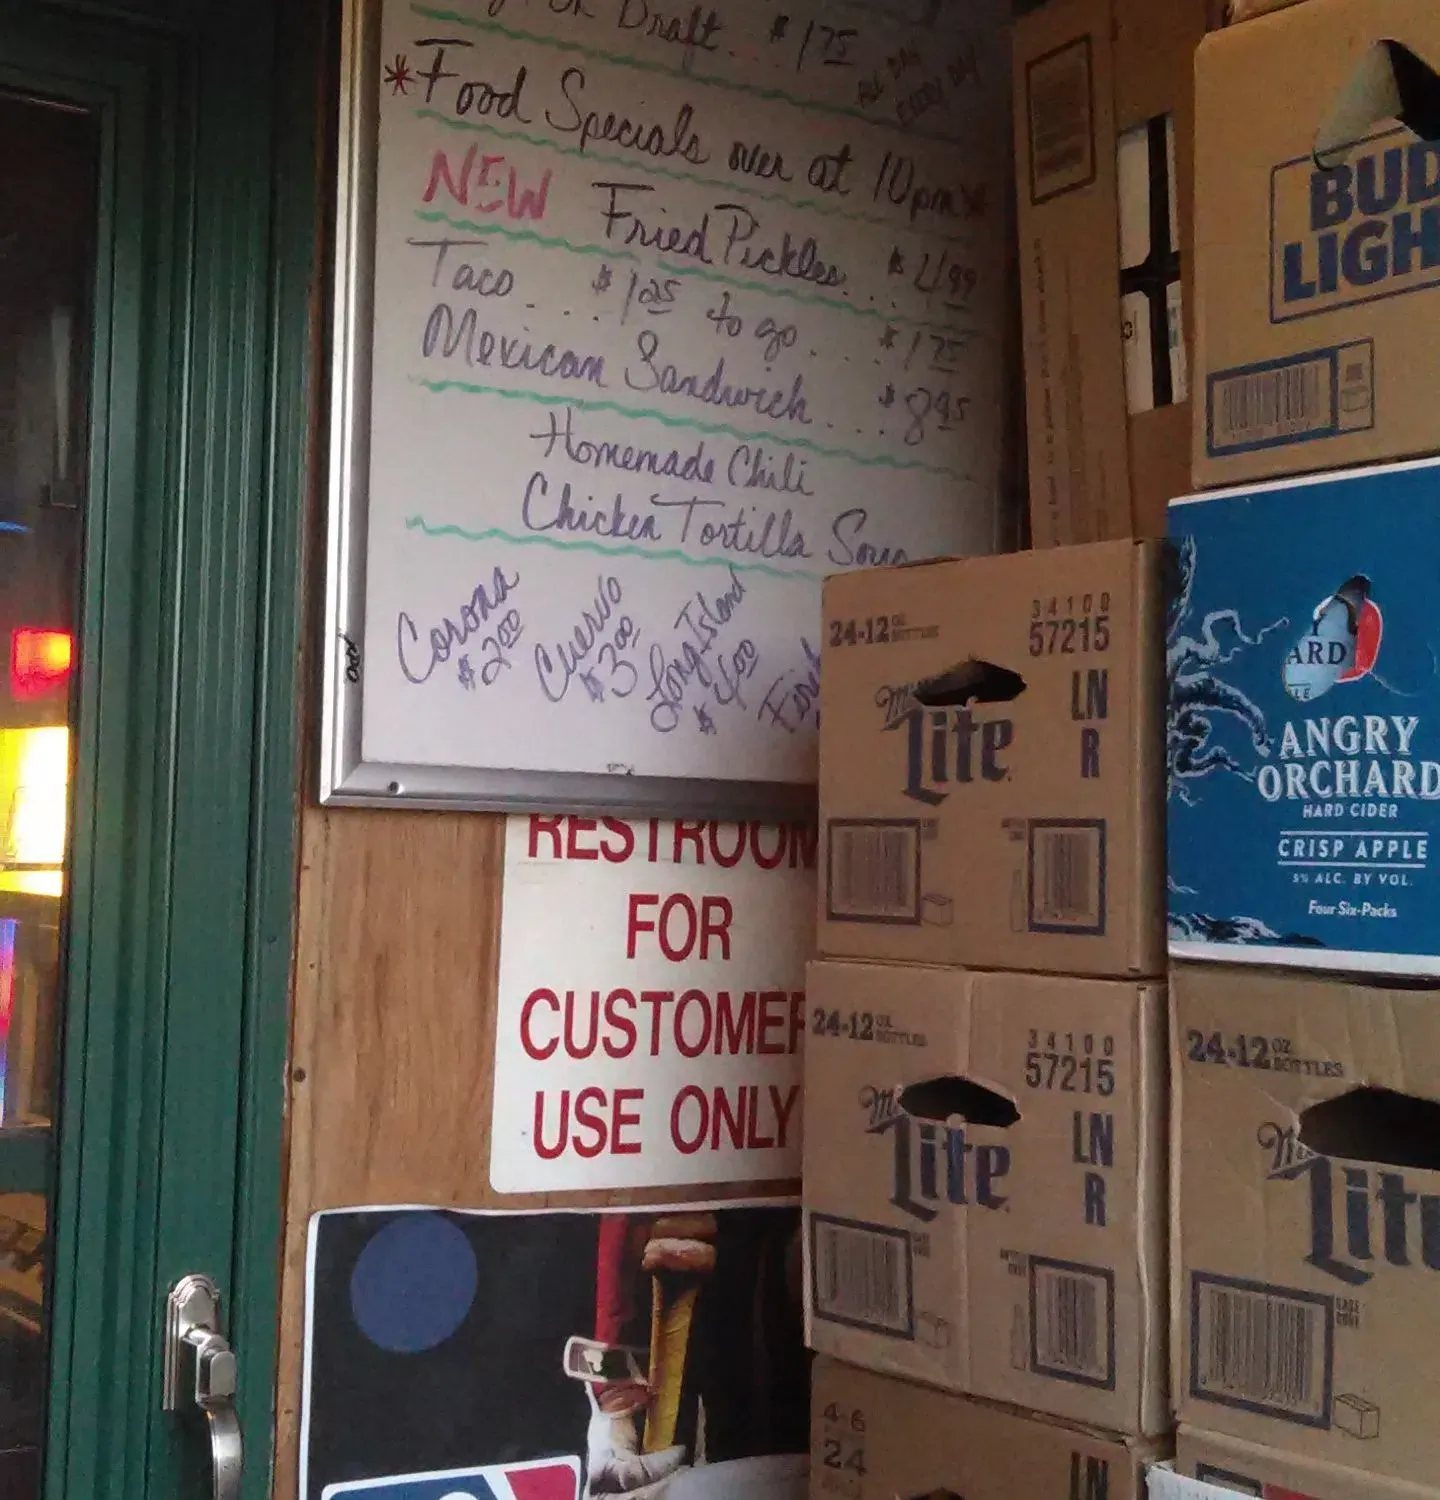 Draft. $1.75 ALL DAY
EVERY DAY
*Food Specials over at 10pm*
NEW Fried Pickles... $4.99
Taco..... $1.25 to go.... $1.75
Mexican Sandwich.... $8.95
Homemade Chili
Chicken Tortilla Soup
Corona
$2.00
Cuervo
$3.00
Long Island
$4.00
RESTROOM
FOR
CUSTOMER
USE ONLY
BUD
LIGH
24-12 OZ BOTTLES
34100
57215
LN
R
Lite
ARD
ANGRY
ORCHARD
HARD CIDER
CRISP APPLE
5% ALC. BY VOL.
Four Six-Packs
24-12 OZ BOTTLES
34100
57215
LN
R
Lite
24-12 OZ BOTTLES
Lite
4-6
24
LN